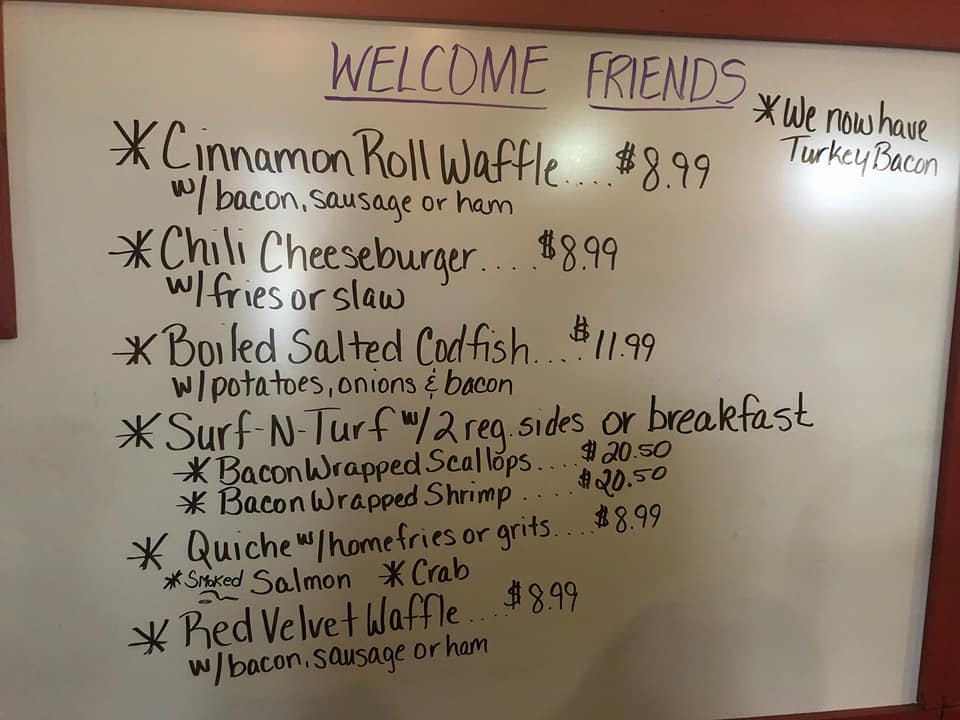 WELCOME FRIENDS
*We now have
Turkey Bacon
*Cinnamon Roll Waffle.....$8.99
w/bacon, sausage or ham
*Chili Cheeseburger.....$8.99
w/fries or slaw
*Boiled Salted Codfish.....$11.99
w/potatoes, onions & bacon
*Surf-N-Turf w/2 reg. sides or breakfast
*Bacon Wrapped Scallops....$20.50
*Bacon Wrapped Shrimp.....$20.50
*Quiche w/homefries or grits.....$8.99
*Smoked Salmon *Crab
*Red Velvet Waffle.....$8.99
w/bacon, sausage or ham